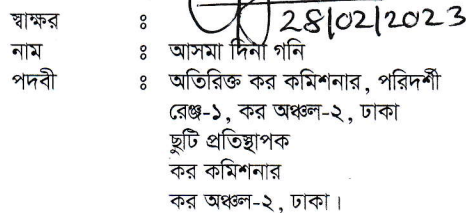 স্বাক্ষর ঃ 28/02/2023
নাম ঃ আসমা দিনা গনি
পদবী ঃ অতিরিক্ত কর কমিশনার, পরিদর্শী
রেঞ্জ-১, কর অঞ্চল-২, ঢাকা
ছুটি প্রতিস্থাপক
কর কমিশনার
কর অঞ্চল-২, ঢাকা।